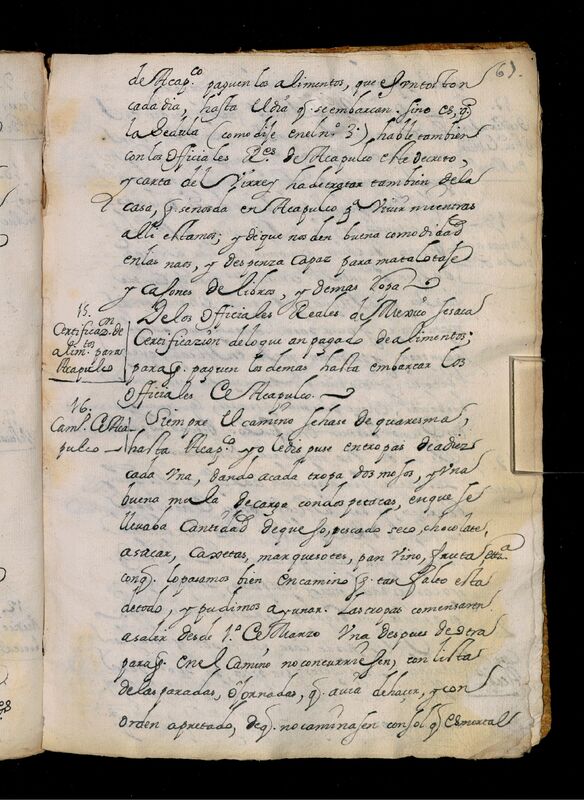 61.
de Acap.co paguen los alimentos, que el Pntos ton
cada dia, hasta el dia q. se embarcan. Sino es, q.
la Zedula (como dije en el n.º 3.º) hable tambien
con los Officiales R.es de Acapulco este decreto,
y carta del Virrey ha de tratar tambien de la
casa, q. se nos da en Acapulco p.a Vivir mientras
alli estamos; y de que nos den buena comodidad
en las naos, y despenza capaz para matalotaje
y cajones de libros, y demas Ropa
15.
Certificaz.on de
alim.tos para
Acapulco
De los Officiales Reales de Mexico se saca
Certificazión de lo que an pagado de alimentos;
para q. paguen los demas hasta embarcar los
Officiales de Acapulco.
16.
Cam.o de Aca
pulco
Siempre el camino se hase de quaresma,
hasta Acap.co y yo le dispuse en tropas de adiez
cada Una, dando a cada tropa dos mosos, y Una
buena mula de carga con dos petacas, en que se
llevaba Cantidad de queso, pescado seco, chocolate,
asucar, Caxetas, marquesotes, pan Vino, fruta ettc.a
con q. lo pasamos bien en camino q. tan falto esta
de todo, y pudimos ayunar. Las tropas comensaron
a salir desde 1.º de Marzo Una despues de otra
para q. en el Camino no concurriesen, con lista
de las paradas, o jornadas, q. avia de haçer, y con
orden apretado, de q. no caminasen con sol q. es mortal